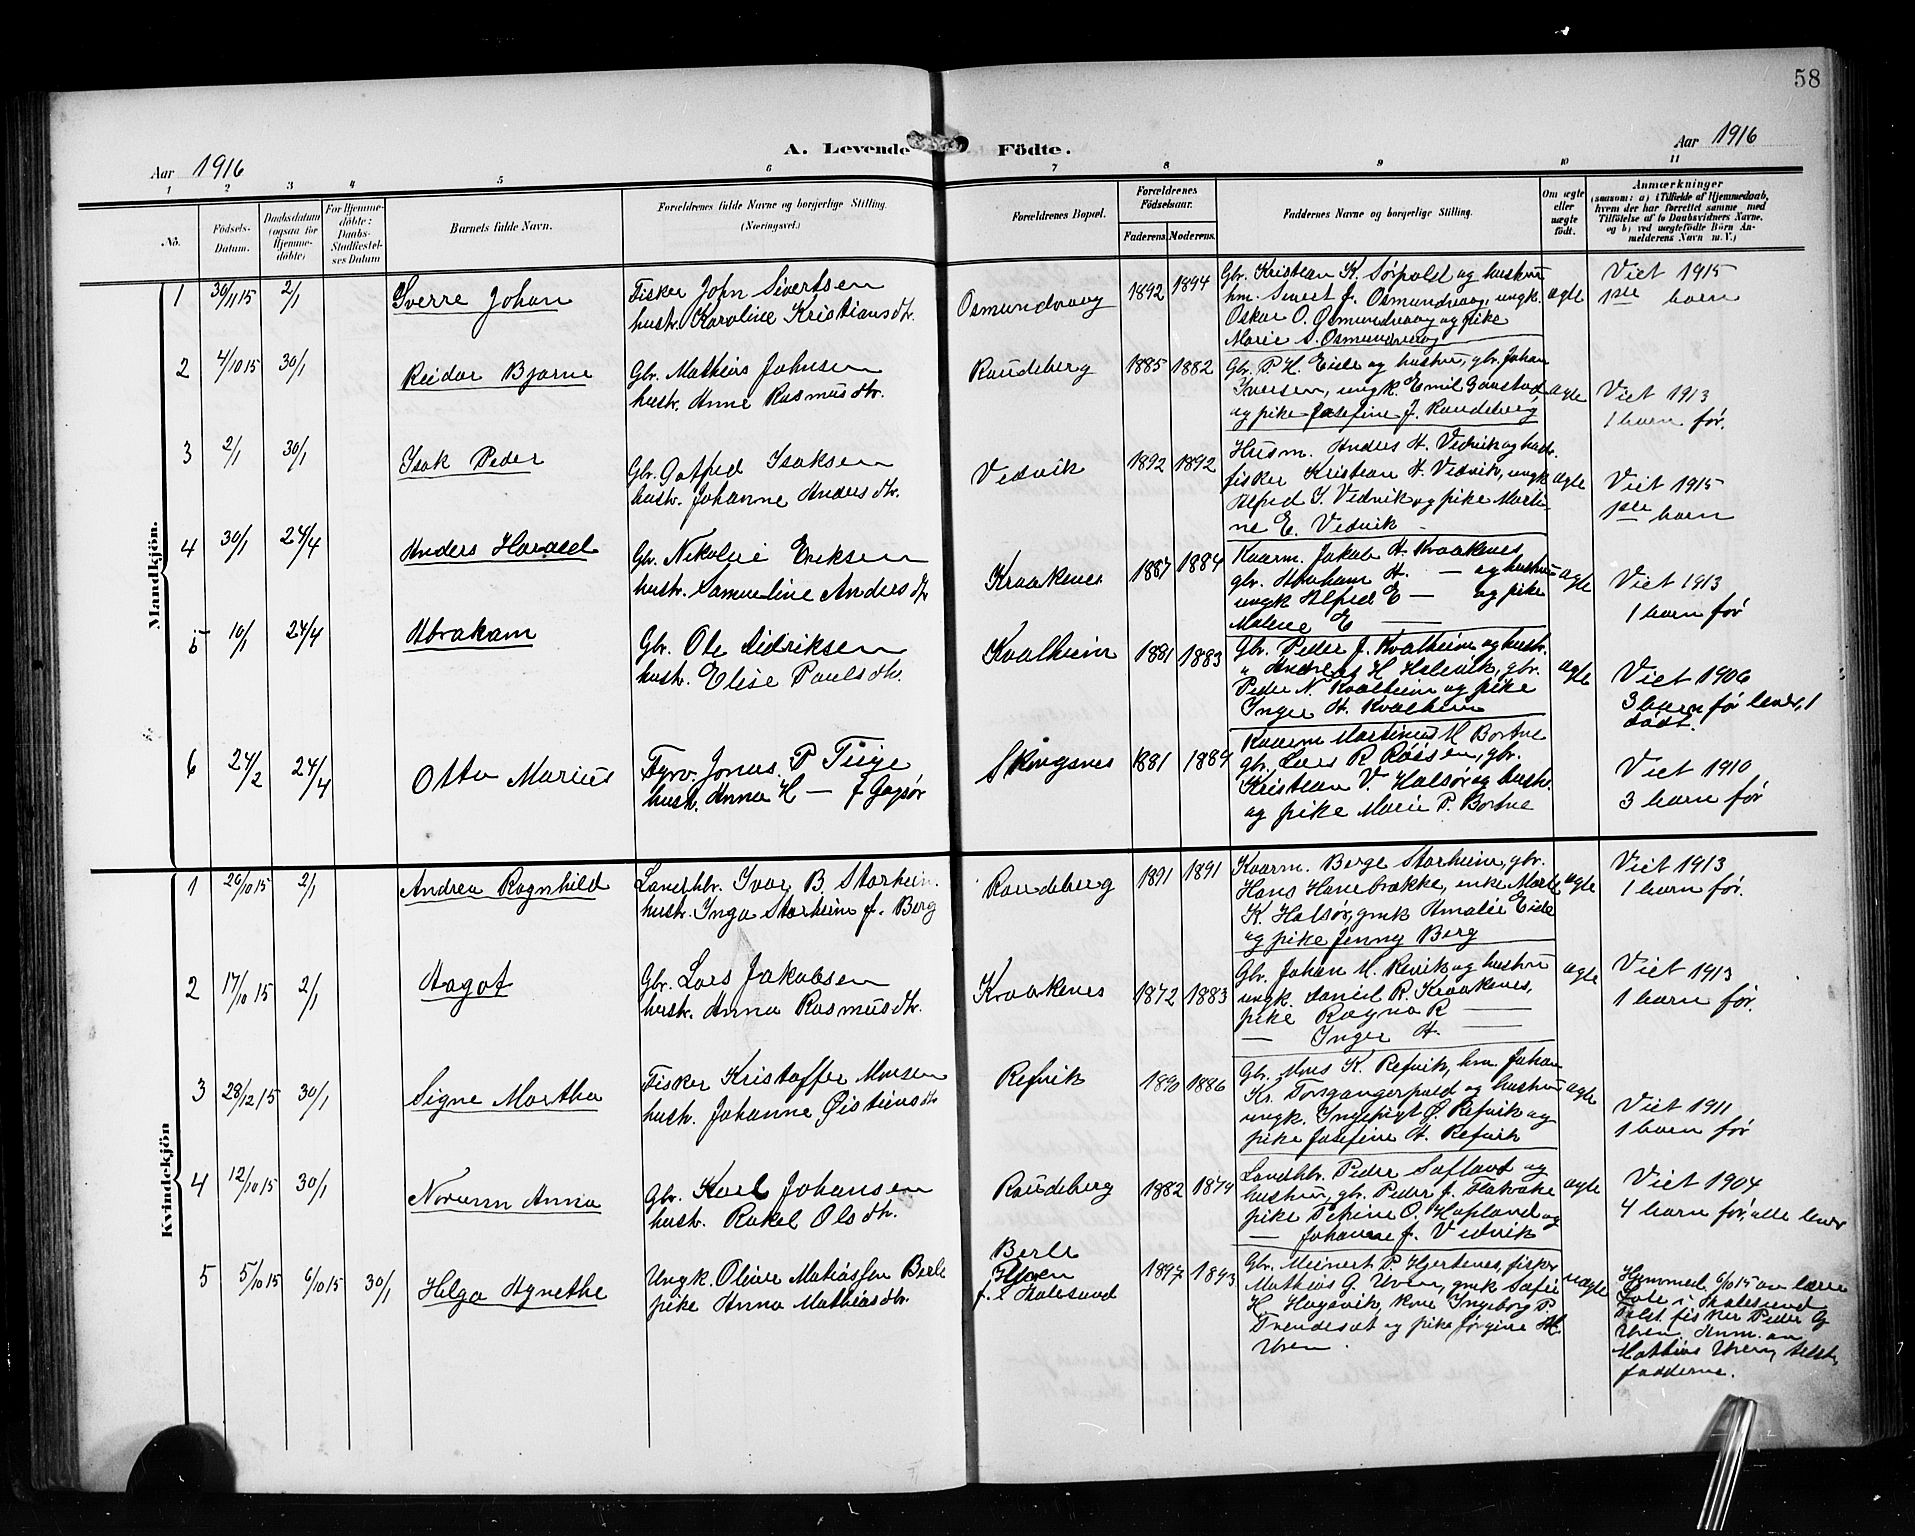 58
A. Levende Födte.
Aar 1916
Aar 1916
1 2 3 4 5 6 7 8 9 10 11
Nô.
Födsels-
Datum.
Daabsdatum
(ogsaa for
Hjemme-
döbte)
For Hjemme-
döbte:
Daabs-
Stadfæstel-
ses Datum
Barnets fulde Navn.
Forældrenes fulde Navne og borgerlige Stilling.
(Næringsvei.)
Forældrenes Bopæl.
Forældrenes
Födselsaar.
Faderens. Moderens.
Faddernes Navne og borgerlige Stilling.
Om ægte
eller
uægte
födt.
Anmærkninger
(saasom: a) i Tilfælde af Hjemmedaab,
hvem der har forrettet samme med
Tilföielse af to Daabsvidners Navne.
og b) ved uægtefödte Börn An-
melderens Navn m. V.)
Mandkjön.
1 30/11 15 2/1 Sverre Johan
Fisker John Sivertsen
hustr. Karoline Kristiansdtr.
Osmundvaag 1892 1894
Gbr. Kristian K. Sørpold og hustru
hm. Sivert J. Osmundvaag, ungk.
Oskar O. Osmundvaag og pike
Marie S. Osmundvaag
ægte
Viet 1915
1ste barn
2 4/10 15 30/1 Reidar Bjarne
Gbr. Mathias Johnsen
hustr. Anne Rasmusdtr.
Raudeberg 1885 1882
Gbr. P. H. Eide og hustru, gbr. Johan
Iversen, ungk. Emil Gaustad,
og pike Josefine J. Raudeberg
ægte
Viet 1913
1 barn før.
3 2/1 30/1 Isak Peder
Gbr. Gotfred Isaksen
hustr. Johanne Andersdtr.
Vedvik 1892 1892
Husm. Anders A. Vedvik og hust.
fisker Kristian A. Vedvik, ungk
Alfred I. Vedvik og pike Marti-
ne E. Vedvik
ægte
Viet 1915
1ste barn
4 30/1 24/4 Anders Harald
Gbr. Nikolai Eriksen
hustr. Samueline Andersdtr
Kraakenes 1887 1884
Kaarm. Jakob A. Kraakenes,
gbr. Abraham A. — og hustru
ungk Alfred E — og pike
Malene E —
ægte
Viet 1913
1 barn før
5 10/1 24/4 Abraham
Gbr. Ole Didriksen
hustr. Elise Paulsdtr.
Kvalheim 1881 1883
Gbr. Peder J. Kvalheim og hustr.
" Andreas H. Halsvik, gbr.
Peder N. Kvalheim og pike
Inger A. Kvalheim
ægte
Viet 1906
3 barn før lever, 1
dødt.
6 24/2 24/4 Otto Marius
Fyrv. Jonas P Tuge
hustr. Anna H — f. Gogsør
Skongsnes 1881 1884
Kaarm Martinus M Bortne
gbr. Lars R Røssen, gbr.
Kristian V. Halsør og hustr.
og pike Marie P. Bortne
Viet 1910
3 barn før
Kvindekjön
1 26/10 15 2/1 Andrea Ragnhild
Landhbr. Ivar B. Starheim.
hustr. Inga Starheim f. Berg
Raudeberg 1891 1891
Kaarm. Berge Starheim, gbr.
Hans Hanebrække, enke Marte
K. Halsør, gmk Amalie Eide
og pike Jenny Berg
ægte
Viet 1913
1 barn før.
2 17/10 15 2/1 Aagot
Gbr. Lars Jakobsen
hustr. Anna Rasmusdtr.
Kraakenes 1872 1883
Gbr. Johan M. Revik og hustru
ungk. Daniel R. Kraakenes,
pike Ragna R —
— Inger A. —
ægte
Viet 1913
1 barn før.
3 28/12 15 30/1 Signe Martha
Fisker Kristoffer Monsen
hustr. Johanne Øistensdtr
Refvik 1890 1886
Gbr. Mons K. Refvik, hm. Johan
Kr. Torsgangerpold og hustru
ungk. Ingebrigt Ø. Refvik og
pike Josefine A. Refvik
ægte
Viet 1911
1 barn før
4 12/10 15 30/1 Norunn Anna
Gbr. Karl Johansen
hustr. Rakel Olsdtr.
Raudeberg 1882 1879
Landhbr. Peder Saftavt og
hustru, gbr. Peder J. Flatrake
pike Petrine O. Hapland og
— Johanne J. Vedvik
ægte
Viet 1904
4 barn før, alle lever
5 5/10 15 6/10 15 30/1 Helga Agnethe
Ungk. Oliver Matiassen Berle
pike Anna Mathiasdtr.
Berle
Uren
f. i Aalesund
1897 1893
Gbr. Meinert P. Hjertenes, fisker
Mathias G. Uren, gmk Sofie
H. Hagevik, kone Ingeborg P.
Trendesæt og pike Jørgine M.
Uren.
uægte
Hjemmed. 6/10 15 av lærer
Lote i Aalesund
Tilst. fisker Peder G
Uren. Anm. av
Mathias Uren, tilst.
fadderne.